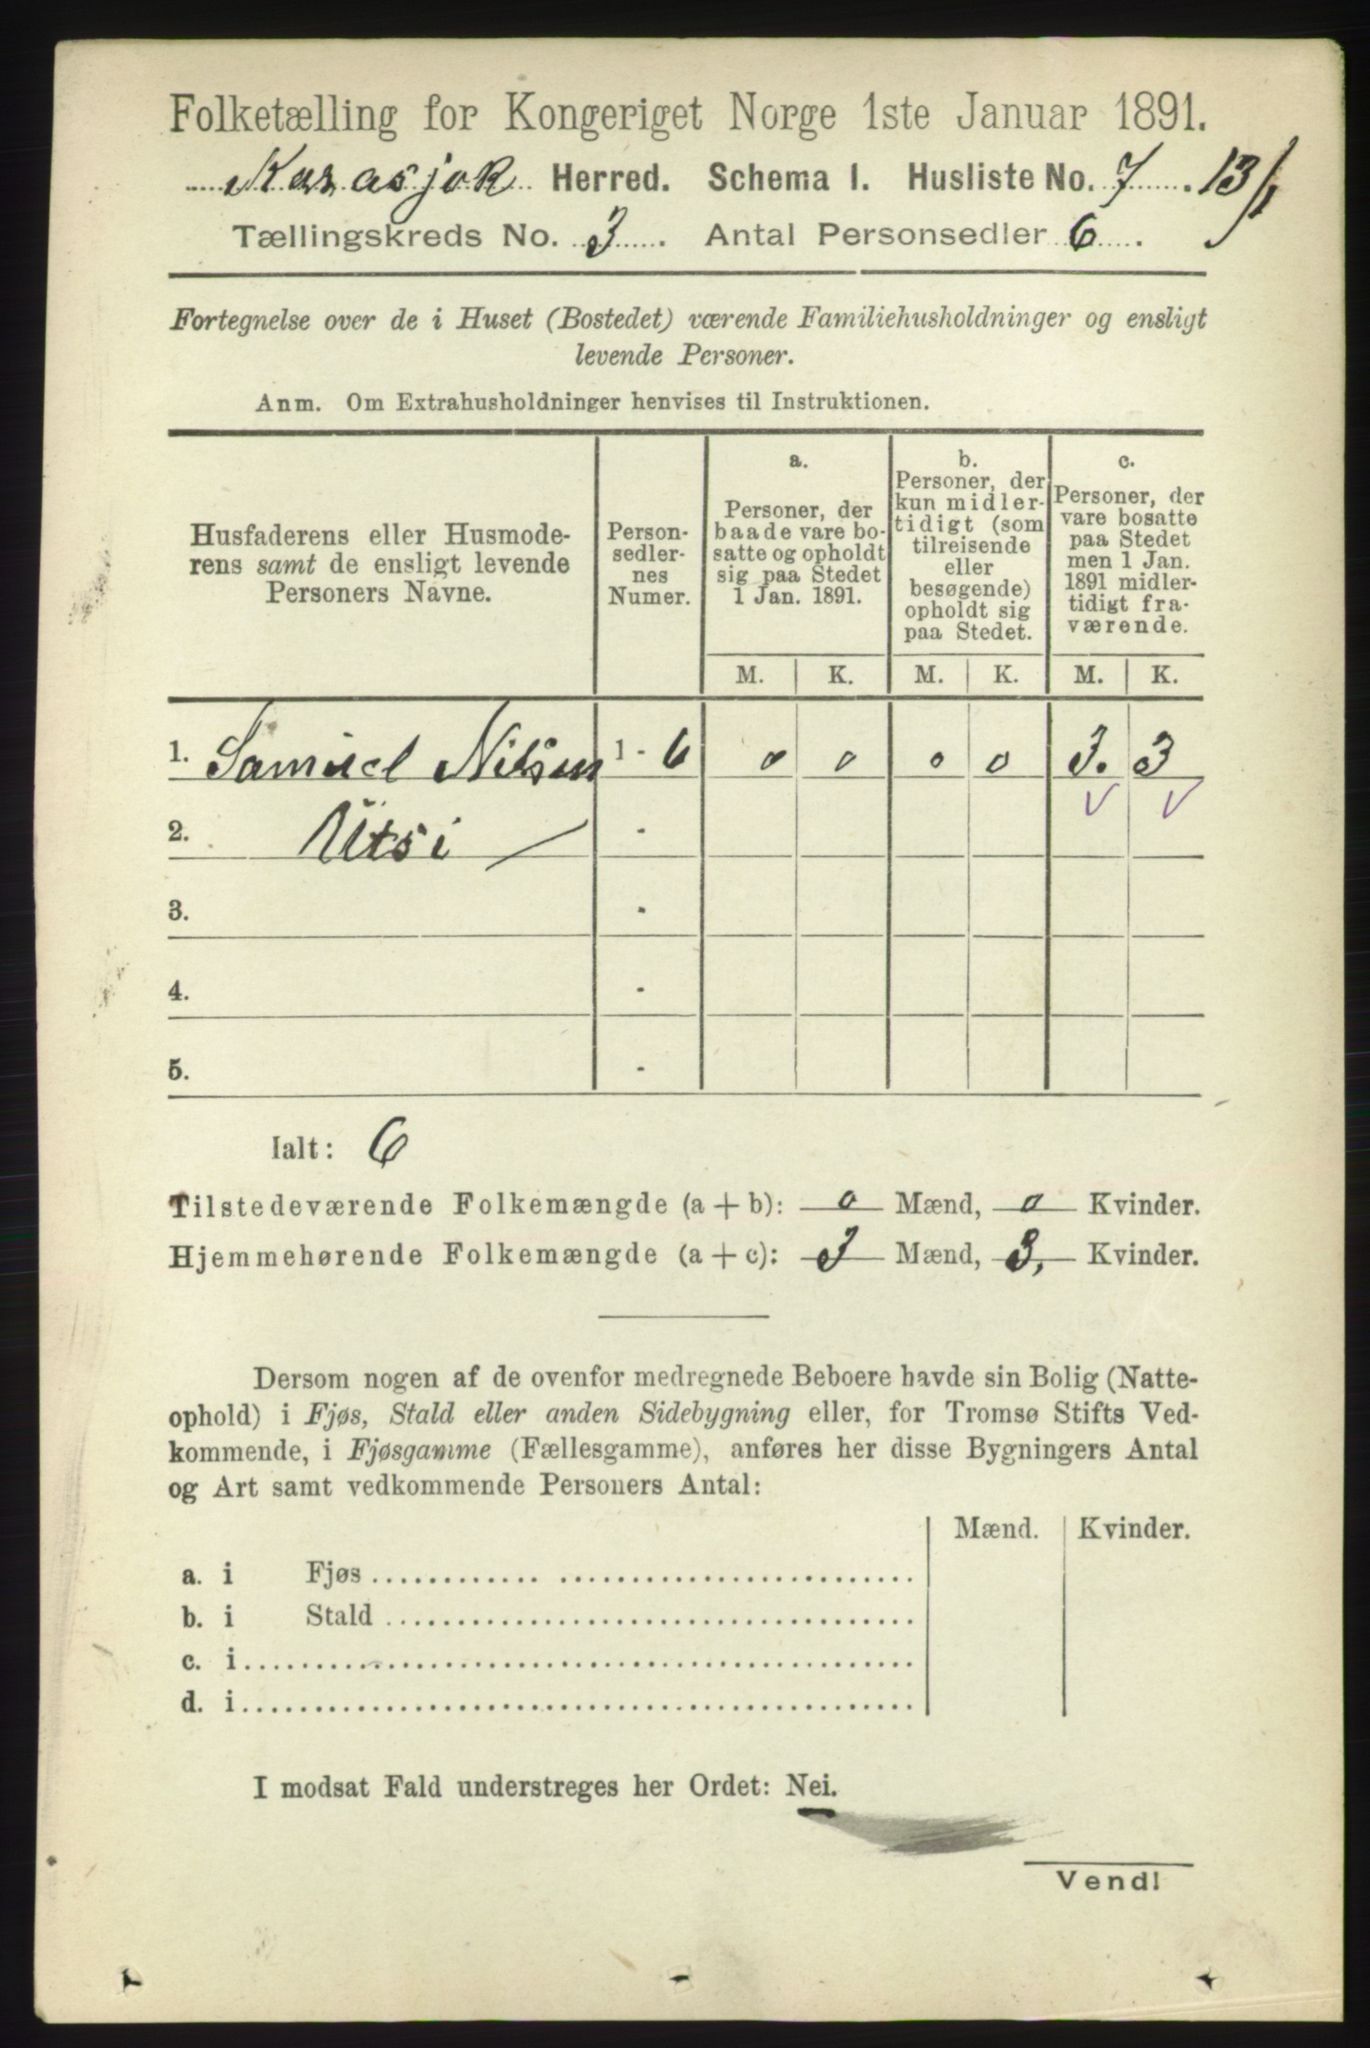 Folketælling for Kongeriget Norge 1ste Januar 1891.
Karasjok Herred. Schema I. Husliste No. 7. 13/1
Tællingskreds No. 3. Antal Personsedler 6.
Fortegnelse over de i Huset (Bostedet) værende Familiehusholdninger og ensligt
levende Personer.
Anm. Om Extrahusholdninger henvises til Instruktionen.
Husfaderens eller Husmode-
rens samt de ensligt levende
Personers Navne.
Person-
sedler-
nes
Numer.
a.
Personer, der
baade vare bo-
satte og opholdt
sig paa Stedet
1 Jan. 1891.
b.
Personer, der
kun midler-
tidigt (som
tilreisende
eller
besøgende)
opholdt sig
paa Stedet.
c.
Personer, der
vare bosatte
paa Stedet
men 1 Jan.
1891 midler-
tidigt fra-
værende.
M. K. M. K. M. K.
1. Samuel Nilsen 1 - 6 0 0 0 0 3. 3
2. Utsi -
3. -
4. -
5. -
Ialt: 6
Tilstedeværende Folkemængde (a + b): 0 Mænd, 0 Kvinder.
Hjemmehørende Folkemængde (a + c): 3 Mænd, 3, Kvinder.
Dersom nogen af de ovenfor medregnede Beboere havde sin Bolig (Natte-
ophold) i Fjøs, Stald eller anden Sidebygning eller, for Tromsø Stifts Ved-
kommende, i Fjøsgamme (Fællesgamme), anføres her disse Bygningers Antal
og Art samt vedkommende Personers Antal:
Mænd. Kvinder.
a. i Fjøs
b. i Stald
c. i
d. i
I modsat Fald understreges her Ordet: Nei.
Vend!